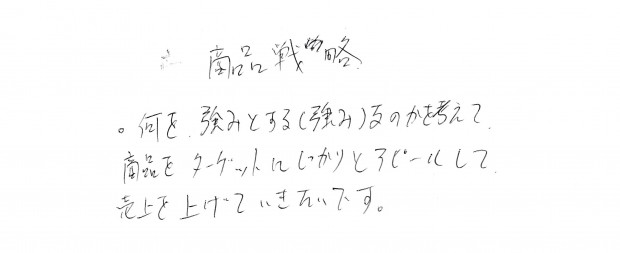 商品戦略
。何を、強みとする(強み)なのかを考えて、
商品をターゲットにしっかりとアピールして、
売上を上げていきたいです。